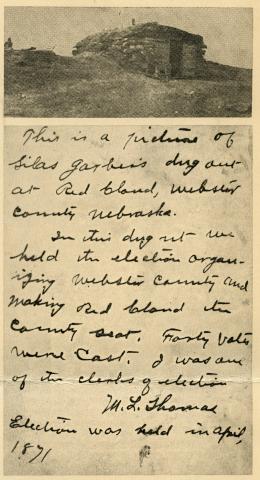 This is a picture of
Silas Garber's dug out
at Red Cloud, Webster
County Nebraska.
In this dug out we
held the election organ-
izing Webster County and
making Red Cloud the
County seat. Forty votes
were cast. I was one
of the clerks of election
M. L. Thomas
Election was held in April,
1871